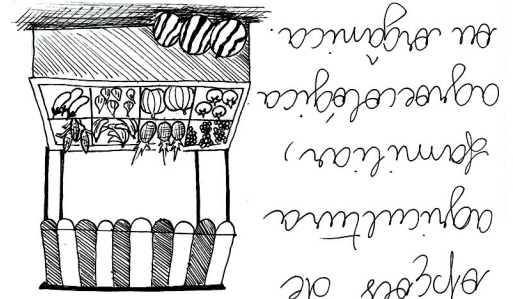 opções de
agricultura
familiar,
agroecológica
ou orgânica.